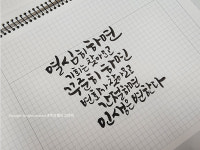 열심히 하면
기회는 찾아오고
꾸준히 하면
변화가 찾아오고
간절하면
인생은 변한다